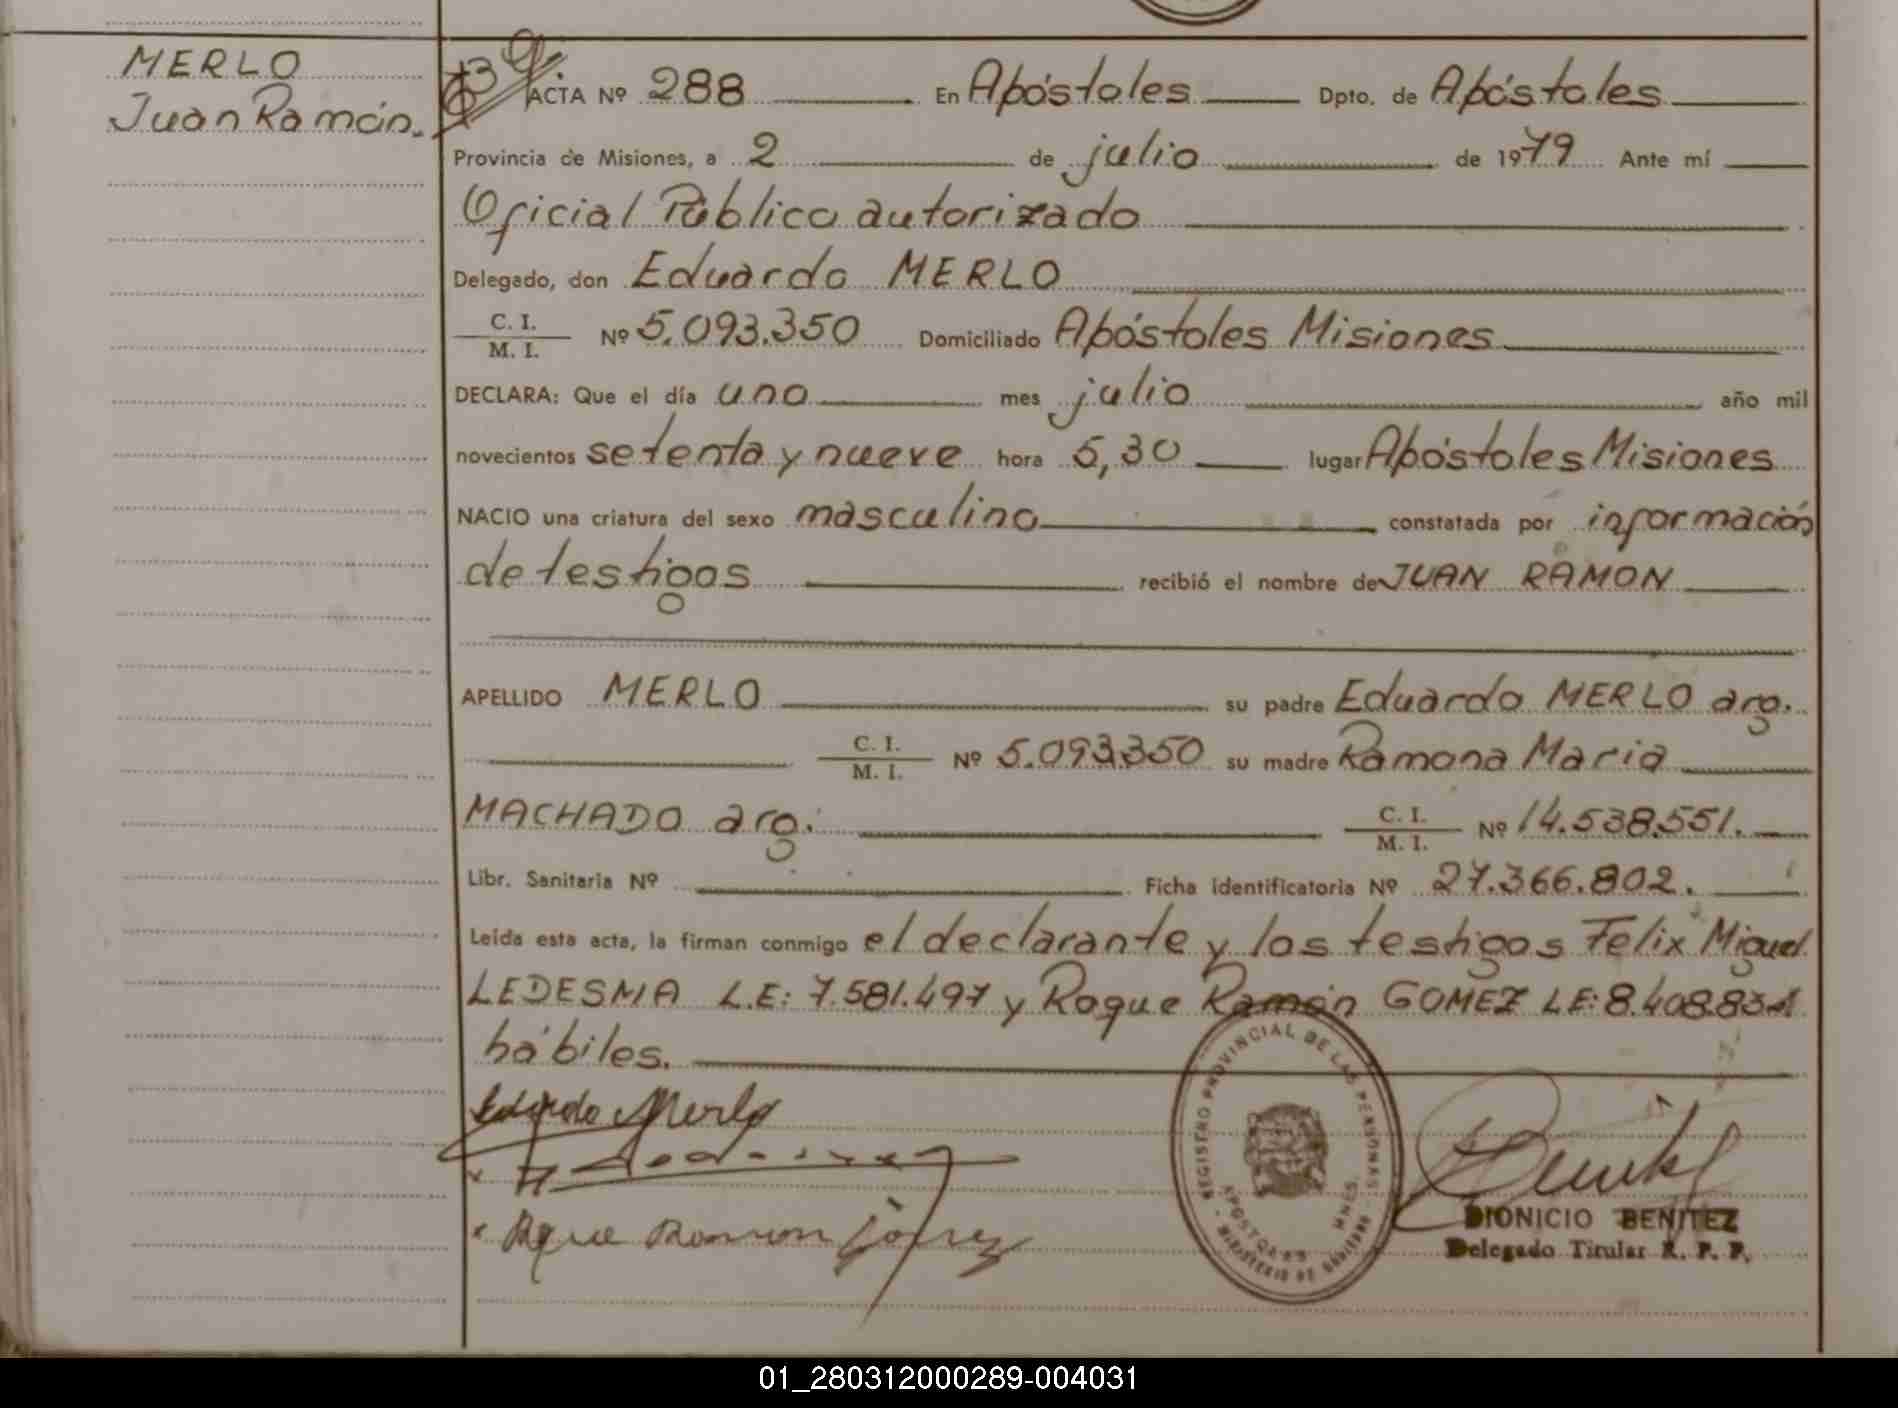 MERLO
Juan Ramón.
ACTA Nº 288 En Apóstoles Dpto. de Apóstoles
Provincia de Misiones, a 2 de julio de 1979 Ante mí
Oficial Público autorizado
Delegado, don Eduardo MERLO
C. I.
M. I.
Nº 5.093.350 Domiciliado Apóstoles Misiones
DECLARA: Que el día uno mes julio año mil
novecientos setenta y nueve hora 5,30 lugar Apóstoles Misiones
NACIO una criatura del sexo masculino constatada por información
de testigos recibió el nombre de JUAN RAMON
APELLIDO MERLO su padre Eduardo MERLO arg.
C. I.
M. I.
Nº 5.093.350 su madre Ramona Maria
MACHADO arg.
C. I.
M. I.
Nº 14.538.551.
Libr. Sanitaria Nº Ficha identificatoria Nº 27.366.802.
Leída esta acta, la firman conmigo el declarante y los testigos Felix Miguel
LEDESMA L.E: 7.581.497 y Roque Ramón GOMEZ LE: 8.408.831
hábiles.
Eduardo Merlo
Roque Ramon Gómez
REGISTRO PROVINCIAL DE LAS PERSONAS
APOSTOLES MNES.
MINISTERIO DE GOBIERNO
DIONICIO BENITEZ
Delegado Titular R. P. P.
01_280312000289-004031